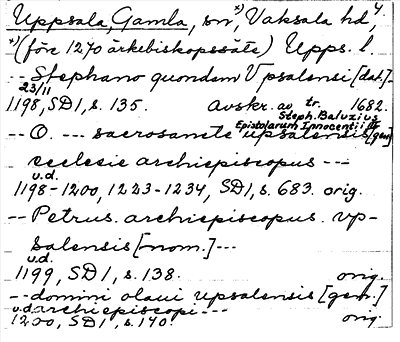 Uppsala, Gamla, sn *), Vaksala hd 4.
*) (före 1270 ärkebiskopssäte) Upps. l.
-- Stephano quondam Vpsalensi [dat.] --
23/11
1198, SD 1, s. 135. avskr. av tr. 1682.
Steph. Baluzius
Epistolarum Innocentii III
-- O. --- sacrosancte upsalensis [gen]
ecclesie archiepiscopus ---
u.d.
1198-1200, 1223-1234, SD 1, s. 683. orig.
-- Petrus. archiepiscopus. vp-
salensis [nom.] ---
u.d.
1199, SD 1, s. 138. orig.
-- domini olaui upsalensis [gen.]
u.d. archiepiscopi ---
1200, SD 1, s. 140. orig.